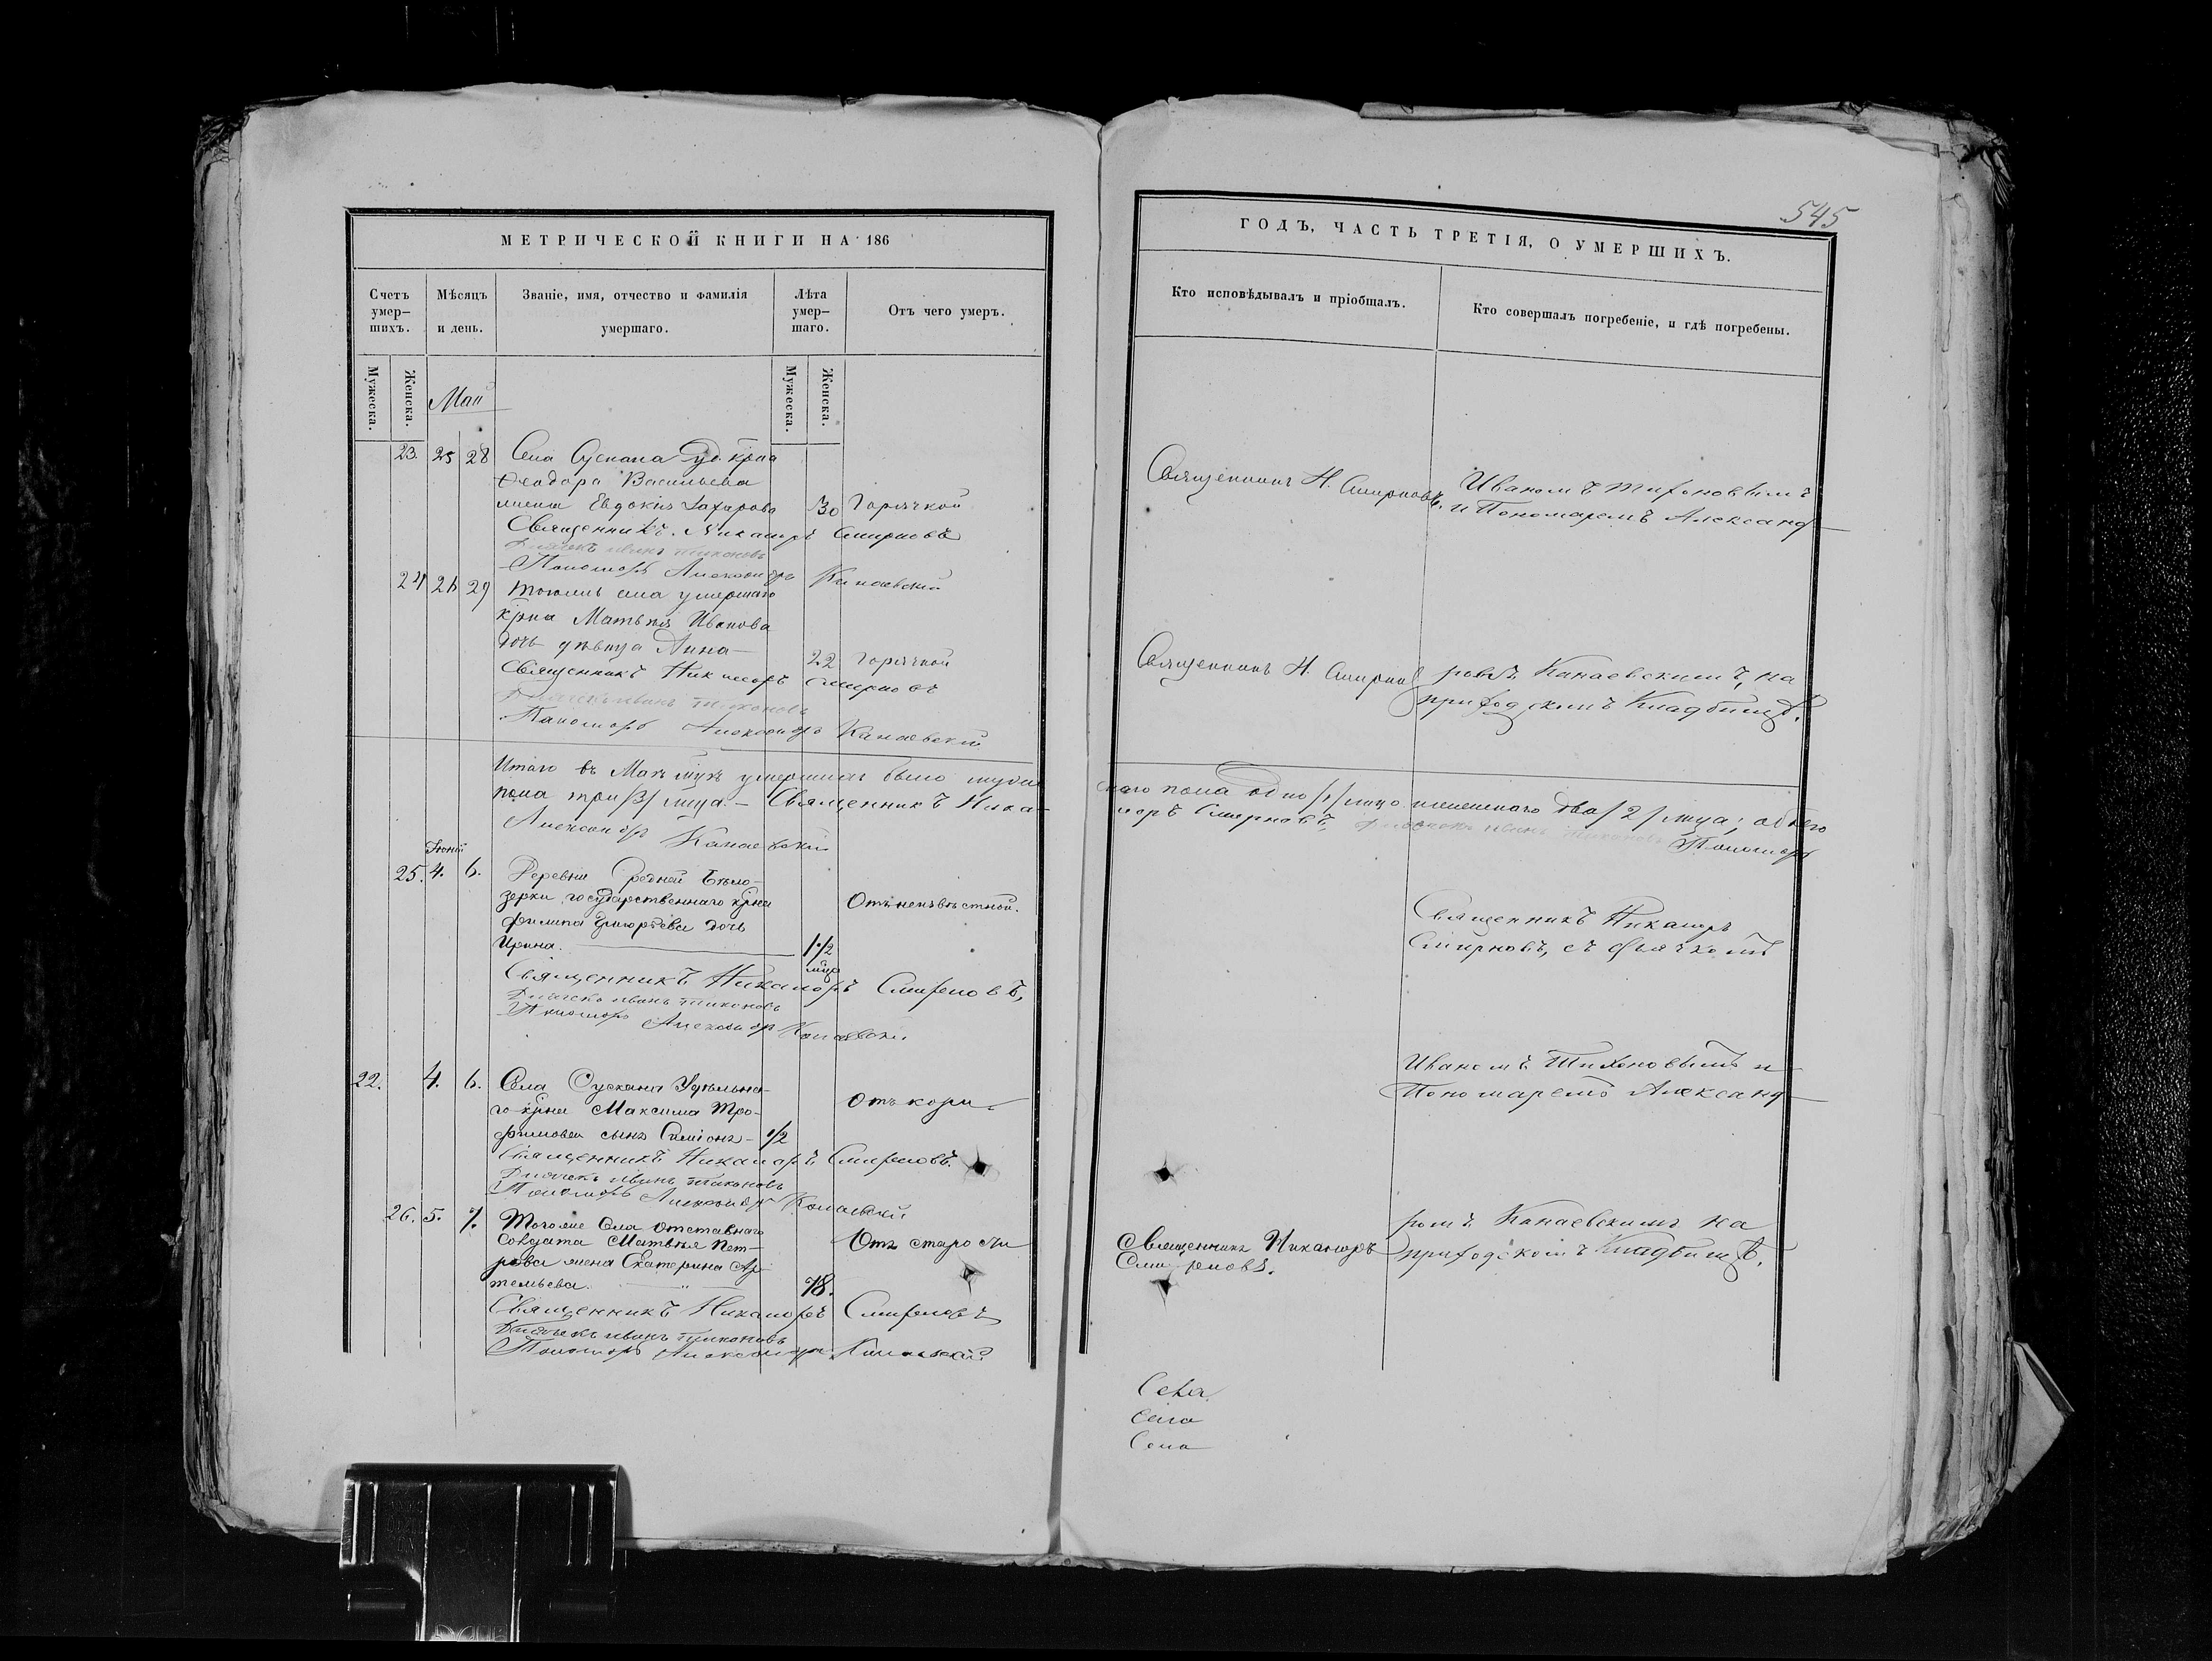 МЕТРИЧЕСКОЙ КНИГИ НА 186
Счетъ умер-
шихъ.
Мѣсяцъ
и день.
Званіе, имя, отчество и фамилія
умершаго.
Лѣта
умер-
шаго.
Отъ чего умеръ.
Мужеска.
Женска.
Мужеска.
Женска.
Май
23. 25 28 Села Сускана Уд. крна
Феодора Васильева
жена Евдокія Захарова 30 Горячкой
Священникъ Никаноръ Смирновъ
Дьячекъ Иванъ Тихоновъ
Пономарь Александръ Канаевскій
24 26 29 Тогоже села умершаго
крна Матвѣя Иванова
дочь дѣвица Анна 22 Горячкой
Священникъ Никаноръ Смирновъ
Дьячекъ Иванъ Тихоновъ
Пономарь Александръ Канаевскій
Итого въ Маѣ мцѣ умершихъ было мужес
пола три /3/ лица. — Священникъ Ника-
Александръ Канаевскій
Іюнь
25. 4. 6. Деревни Средней Бѣло-
зерки государственнаго крна Отъ неизвѣстной.
Филипа Григорьева дочь
Ирина. 1 1/2
мца
Священникъ Никаноръ Смирновъ,
Дьячекъ Иванъ Тихоновъ
Пономарь Александръ Канаевскій
22. 4. 6. Села Сускана Удѣльна-
го крна Максима Тро- Отъ кори
фимова сынъ Симіонъ 1/2
Священникъ Никаноръ Смирновъ.
Дьячекъ Иванъ Тихоновъ
Пономарь Александръ Канаевскій
26. 5. 7. Тогоже Села отставнаго
Солдата Матвѣя Пет- Отъ старости
рова жена Екатерина Ар-
темьева. 78.
Священникъ Никаноръ Смирновъ
Дьячекъ Иванъ Тихоновъ
Пономарь Александръ Канаевскій
545
ГОДЪ, ЧАСТЬ ТРЕТІЯ, О УМЕРШИХЪ.
Кто исповѣдывалъ и пріобщалъ.
Кто совершалъ погребеніе, и гдѣ погребены.
Священникъ Н. Смирновъ. Иваномъ Тихоновымъ
и Пономаремъ Александ-
Священникъ Н. Смирнов ромъ Канаевскимъ, на
приходскомъ Кладбищѣ.
каго пола одно /1/ лицо женскаго два /2/ лица; обоего
норъ Смирновъ, Дьячекъ Иванъ Тихоновъ Пономарь
Священникъ Никаноръ
Смирновъ, съ Дьячкомъ
Иваномъ Тихоновымъ и
Пономаремъ Александ-
Священникъ Никаноръ
Смирновъ.
ромъ Канаевскимъ на
приходскомъ Кладбищѣ.
Села
Села
Села